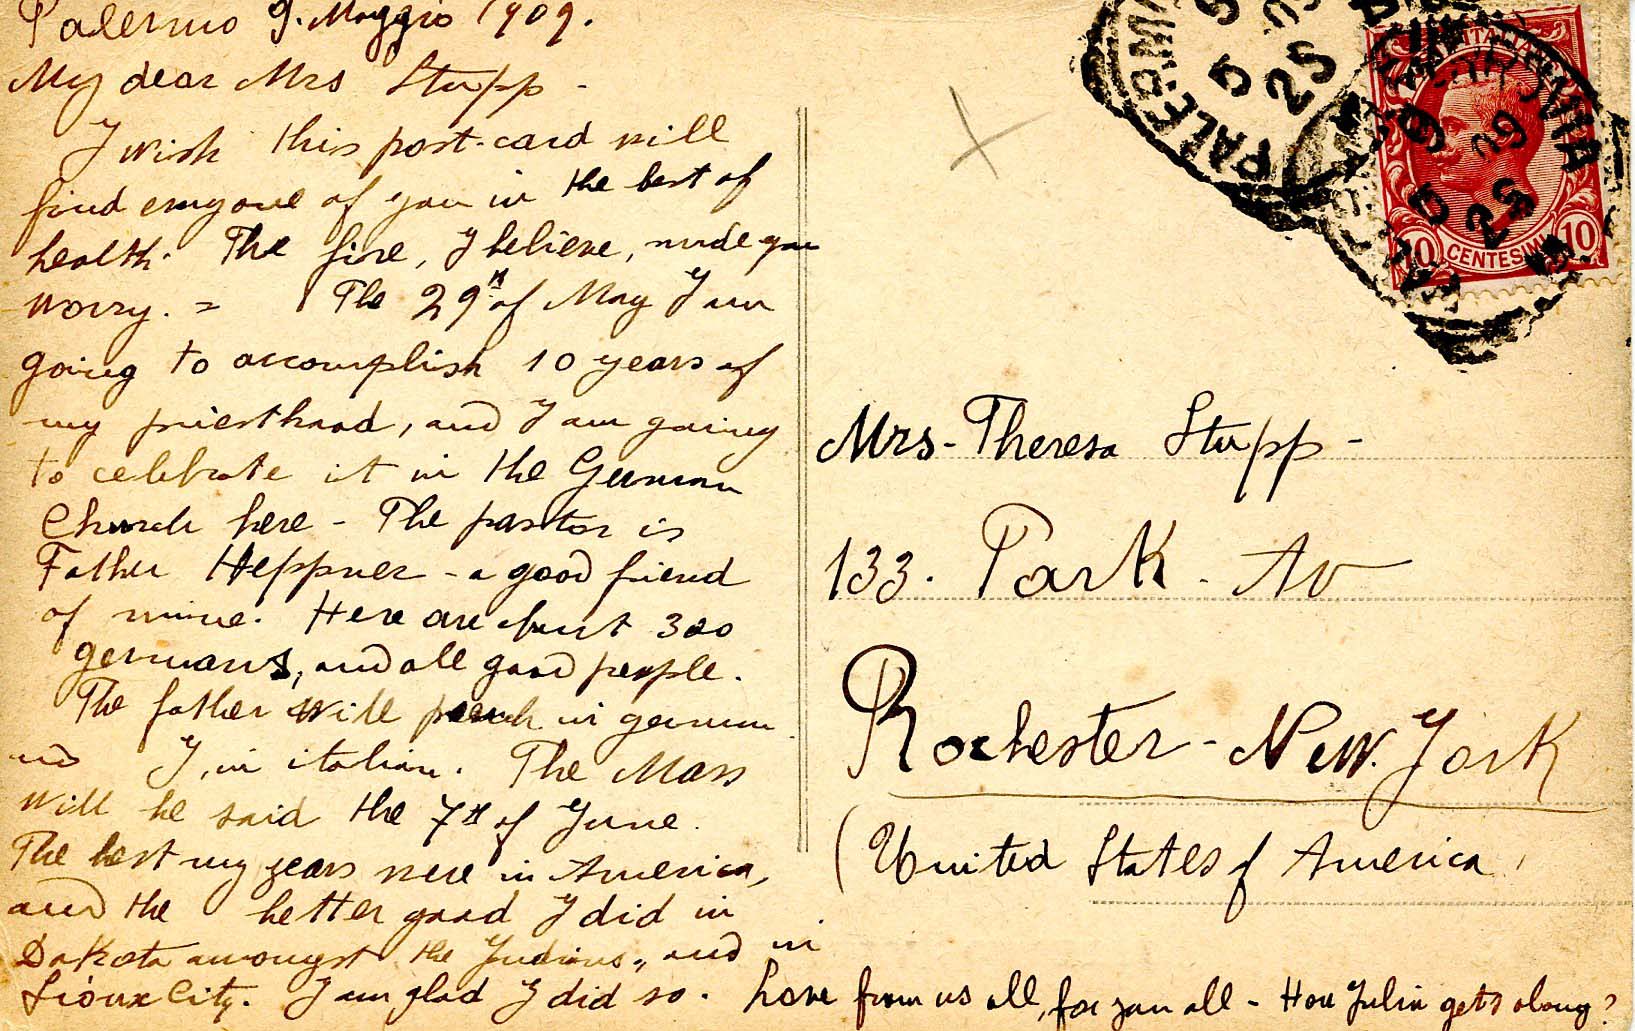 Palermo 9. Maggio 1909.
My dear Mrs Stupp -
I wish this post-card will
find everyone of you in the best of
health. The fire, I believe, made you
worry. = The 29th of May I am
going to accomplish 10 years of
my priesthood, and I am going
to celebrate it in the German
Church here - The pastor is
Father Heppner - a good friend
of mine. Here are about 300
germans, and all good people.
The father will preach in german
and I, in italian. The Mass
will be said the 7th of June.
The best my years were in America,
and the better good I did in
Dakota amongst the Indians, and in
Sioux City. I am glad I did so. Love from us all, for you all - How Julia gets along?
PALERMO
5 25
10 CENTESIMI 10
Mrs - Theresa Stupp -
133. Park - Av
Rochester - New. York
(United States of America